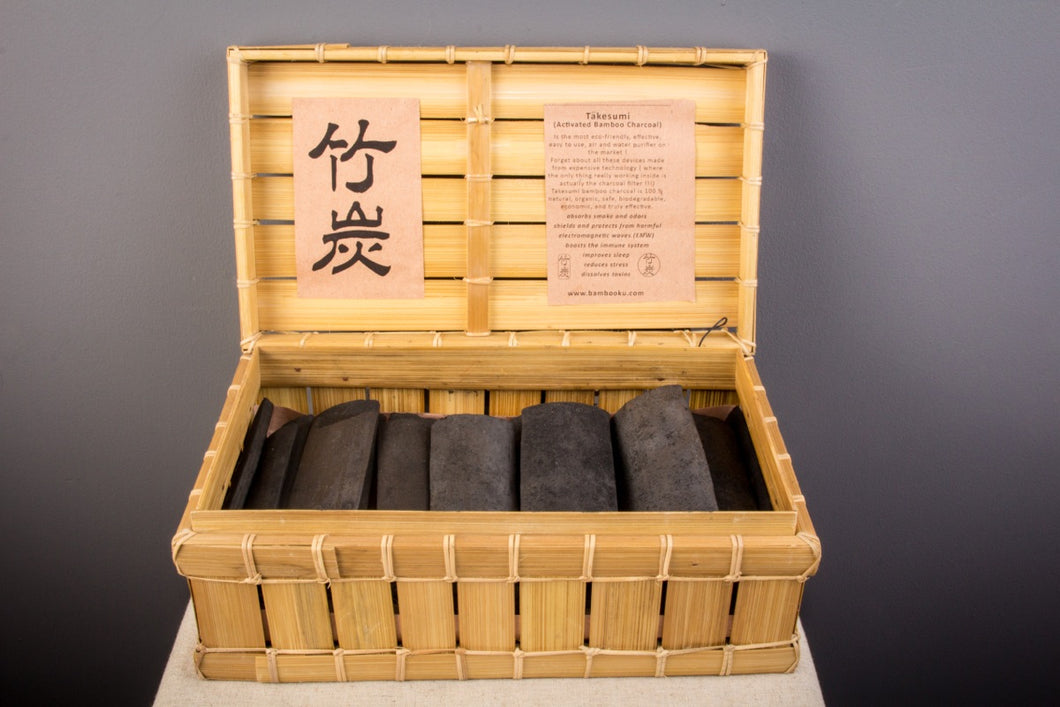 竹
炭
Takesumi
(Activated Bamboo Charcoal)
Is the most eco-friendly, effective,
easy to use, air and water purifier on
the market !
Forget about all these devices made
from expensive technology ( where
the only thing really working inside is
actually the charcoal filter !!!)
Takesumi bamboo charcoal is 100 %
natural, organic, safe, biodegradable,
economic, and truly effective.
absorbs smoke and odors
shields and protects from harmful
electromagnetic waves (EMW)
boosts the immune system
improves sleep
reduces stress
dissolves toxins
竹
炭
竹
炭
www.bambooku.com